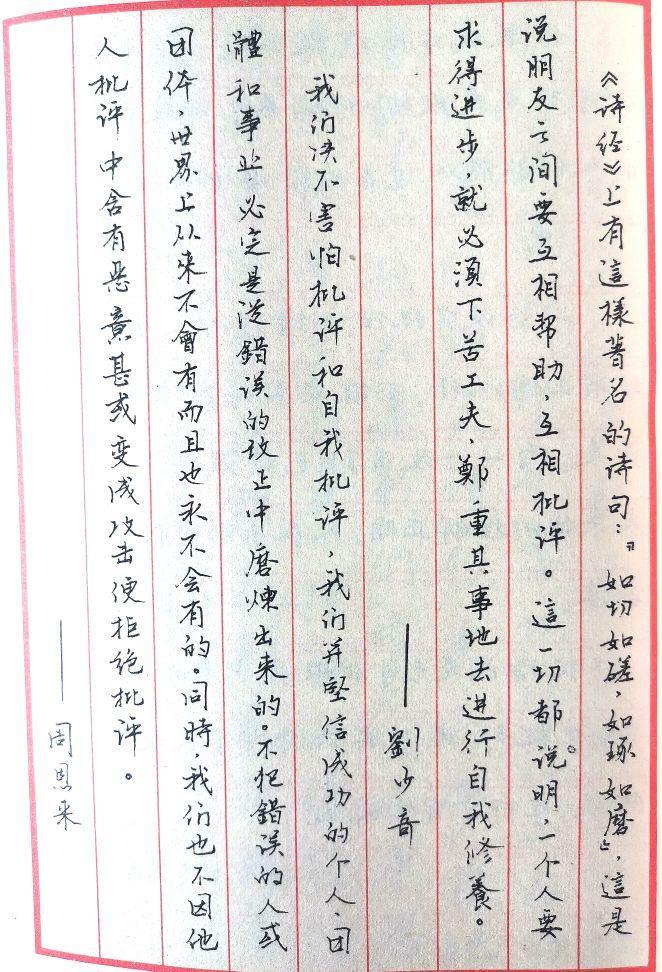 《诗经》上有這樣著名的诗句：『如切如磋，如琢如磨』，這是
说朋友之间要互相帮助，互相批评。這一切都说明，一个人要
求得進步，就必须下苦工夫，鄭重其事地去進行自我修養。
——劉少奇
我们决不害怕批评和自我批评，我们并堅信成功的个人、团
體和事业，必定是從錯误的改正中磨煉出来的。不犯錯误的人或
团体，世界上从來不會有而且也永不会有的。同時我们也不因他
人批评中含有恶意甚或变成攻击便拒绝批评。
——周恩来